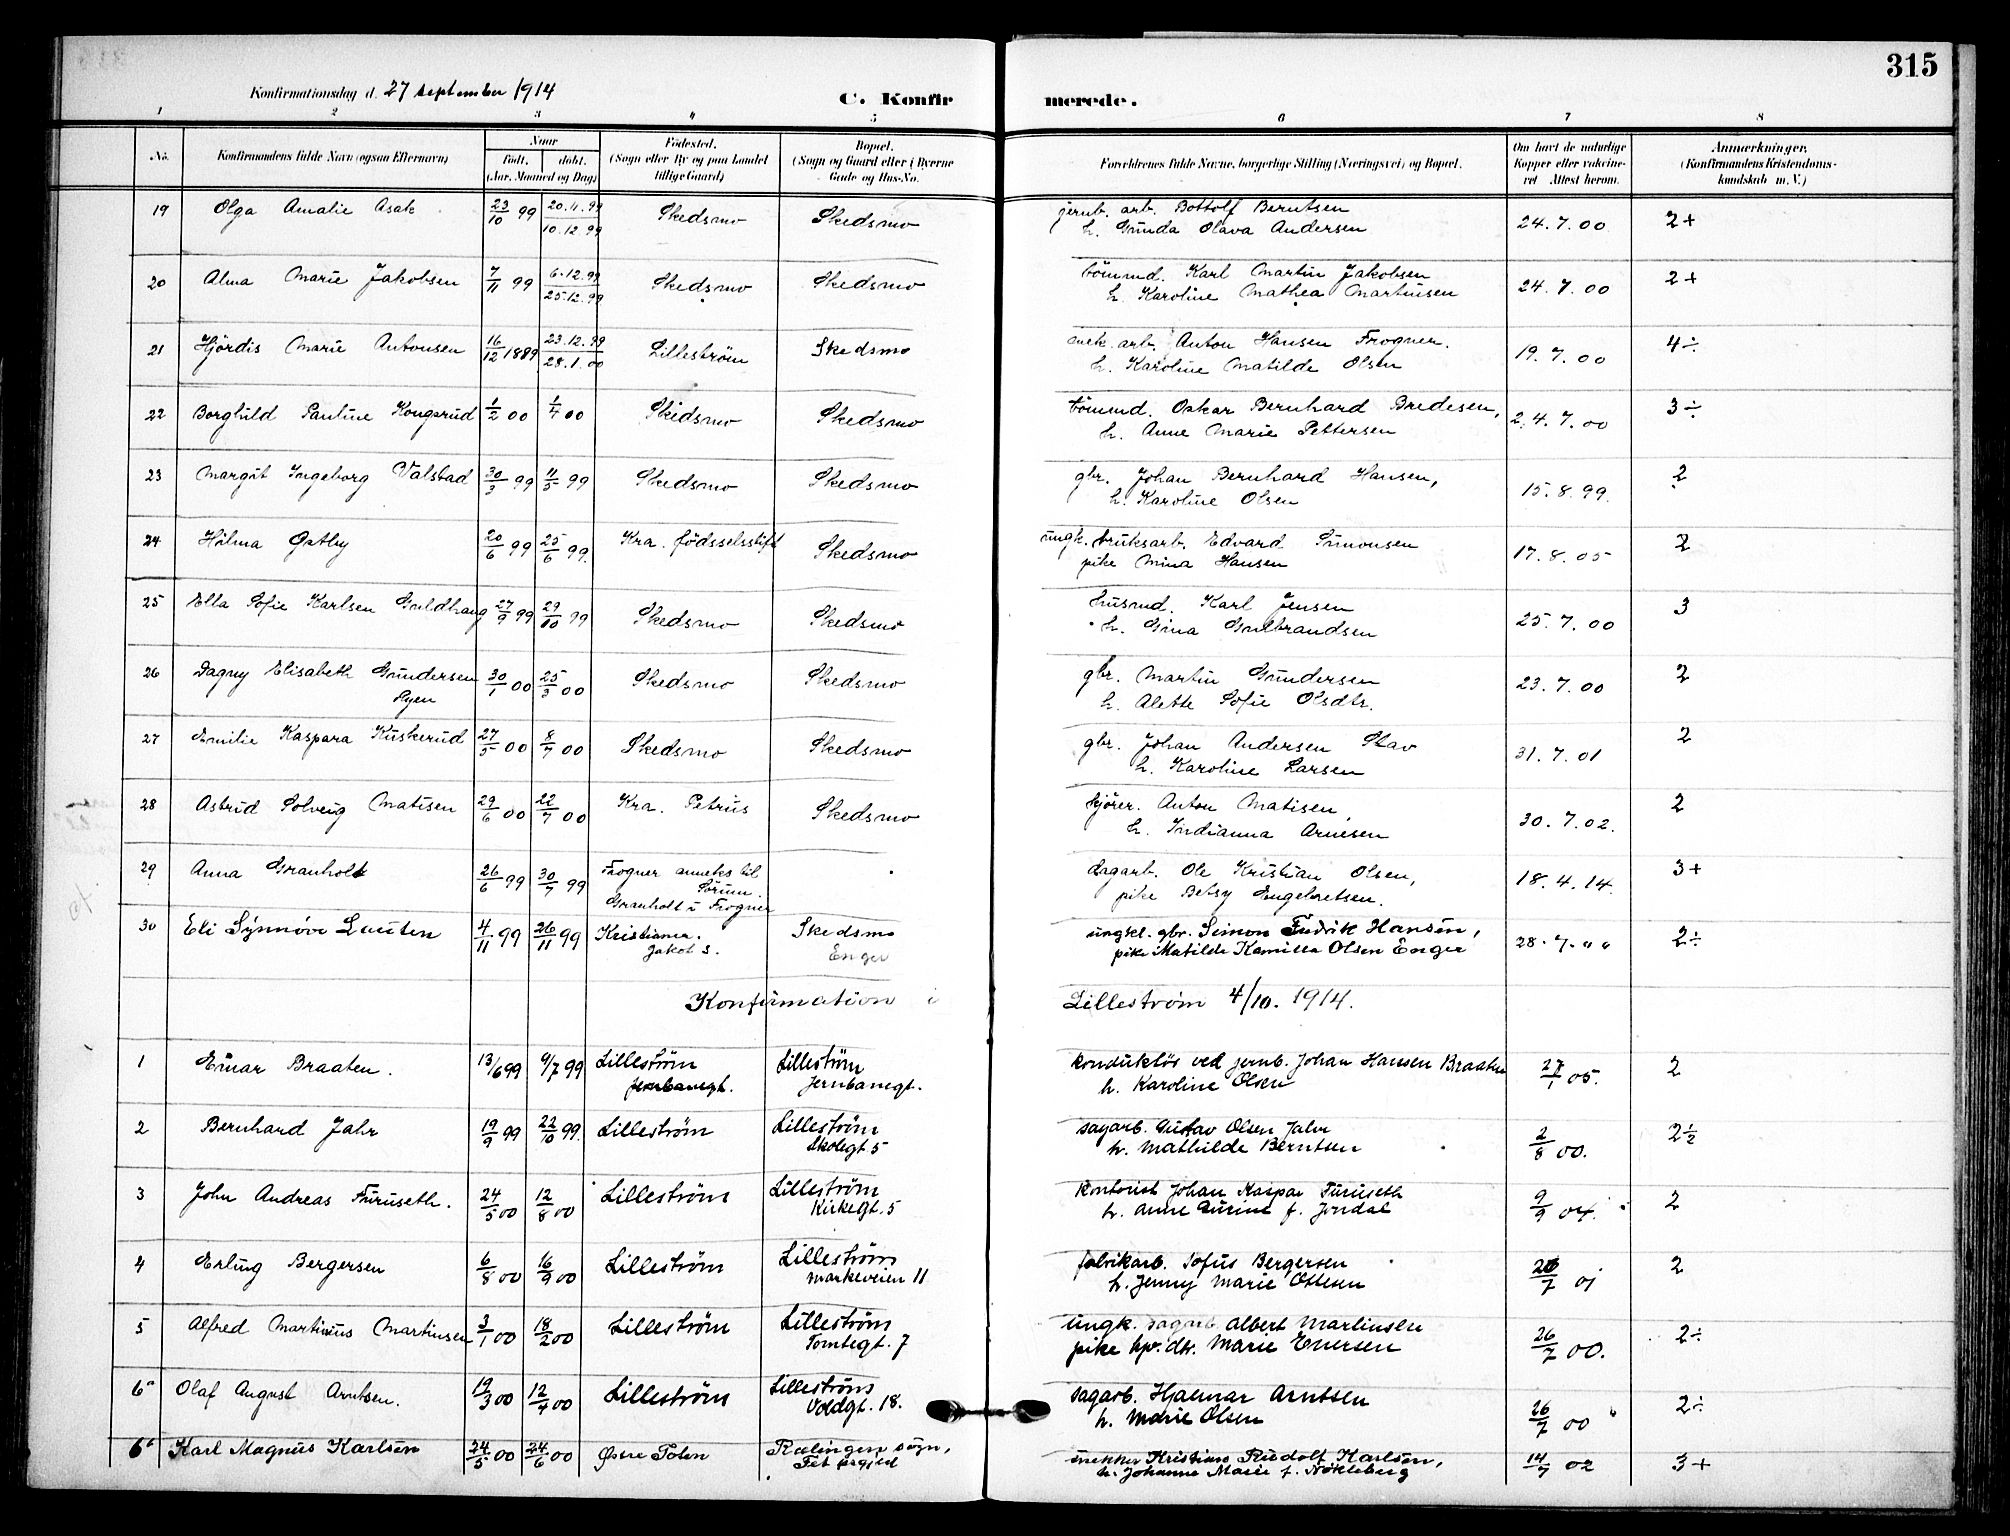 315
Konfirmationsdag d. 27 september 1914
C. Konfirmerede.
1 2 3 4 5 6 7 8
No. Konfirmandens fulde Navn (ogsaa Efternavn) Naar født. døbt. (Aar, Maaned og Dag) Fødested. (Sogn eller By og paa Landet tillige Gaard) Bopæl. (Sogn og Gaard eller i Byerne Gade og Hus-No. Forældrenes fulde Navne, borgerlige Stilling (Næringsvei) og Bopæl. Om havt de naturlige Kopper eller vakcineret Attest herom. Anmerkninger. (Konfirmandens Kristendomskundskab m. V.)
19 Olga Amalie Asak 23/10 99 20.11.99 10.12.99 Skedsmo Skedsmo jernb. arb. Bottolf Berntsen 24.7.00 2+
h. Gunda Olava Andersen
20 Alma Marie Jakobsen 7/11 99 6.12.99 25.12.99 Skedsmo Skedsmo tömmd. Karl Martin Jakobsen 24.7.00 2+
h. Karoline Mathea Martinsen
21 Hjördis Marie Antonsen 16/12 1889 23.12.99 28.1.00 Lilleström Skedsmo mek. arb. Anton Hansen Frogner. 19.7.00 4÷
h. Karoline Matilde Olsen
22 Borghild Pauline Kongsrud 1/2 00 1/4 00 Skedsmo Skedsmo tömmd. Oskar Bernhard Bredesen, 24.7.00 3÷
h. Anne Marie Pettersen
23 Margit Ingeborg Valstad 30/3 99 11/5 99 Skedsmo Skedsmo gbr. Johan Bernhard Hansen, 15.8.99. 2
h. Karoline Olsen
24 Hilma Østby 20/6 99 25/6 99. Kra. födsselsstift Skedsmo ungk. bruksarb. Edvard Simonsen 17.8.05 2
pike Mina Hansen
25 Ella Sofie Karlsen Guldhaug 27/9 99 29/10 99 Skedsmo Skedsmo husmd. Karl Jensen 25.7.00 3
h. Gina Gulbrandsen
26 Dagny Elisabeth Gundersen 30/1 00 25/3 00 Skedsmo Skedsmo gbr. Martin Gundersen 23.7.00 2
h. Alette Sofie Olsdtr.
27 Emilie Kaspara Kuskerud 27/5 00 8/7 00 Skedsmo Skedsmo gbr. Johan Andersen Stav 31.7.01 2
h. Karoline Larsen
28 Astrid Solveig Matisen 29/6 00 22/7 00 Kra. Petrus Skedsmo kjörer. Anton Matisen, 30.7.02. 2
h. Indianna Arnesen
29 Anna Granholt 26/6 99 30/7 99 Frogner anneks til Sörum. Granholt i Frogner dagarb. Ole Kristian Olsen, 18.4.14. 3+
pike Betsy Engebretsen.
30 Eli Synnöve Lunten 4/11 99 26/11 99 Kristiania. Jakob s. Skedsmo Enger ungkl. gbr. Simon Fredrik Hansen, 28.7. " " 2÷
pike Matilde Kamilla Olsen Enger
Konfirmation i Lilleström 4/10. 1914.
1 Einar Braaten. 13/6 99 9/7 99 Lilleström Jernbanegt. Lilleström Jernbanegt. konduktös ved jernb. Johan Hansen Braaten 27/1 05. 2
h. Karoline Olsen
2 Bernhard Jahr 19/9 99 22/10 99. Lilleström Lilleström Skolegt. 5 sagarb. Gustav Olsen Jahr 2/8 00. 2÷
h. Mathilde Berntsen
3 John Andreas Furuseth. 24/5 00 12/8 00 Lilleström Lilleström Kirkegt. 5 kontorist Johan Kaspar Furuseth 9/9 04. 2
h. Anne Gurine f. Jondal
4 Erling Bergersen 6/8 00 16/9 00 Lilleström Lilleström Markeveien 11 fabrikarb. Sofus Bergersen 2
h. Jenny Marie Ottesen
5 Alfred Martinius Martinsen 3/1 00 18/2 00 Lilleström Lilleström Tomtegt. 7 ungk. sagarb Albert Martinsen 26/7 00. 2÷
pike hp. dtr. Marie Enersen
6a Olaf August Arntsen. 19/3 00 12/4 00 Lilleström Lilleström Voldgt. 18. sagarb. Hjalmar Arntsen 26/7 00 2÷
h. Marie Olsen
6b Karl Magnus Karlsen 24/5 00 24/6 00 Østre Toten Rælingen sogn, Fet prgjeld snekker Kristian Rudolf Karlsen, 14/7 02 3+
h. Johanne Marie f. Nökleberg